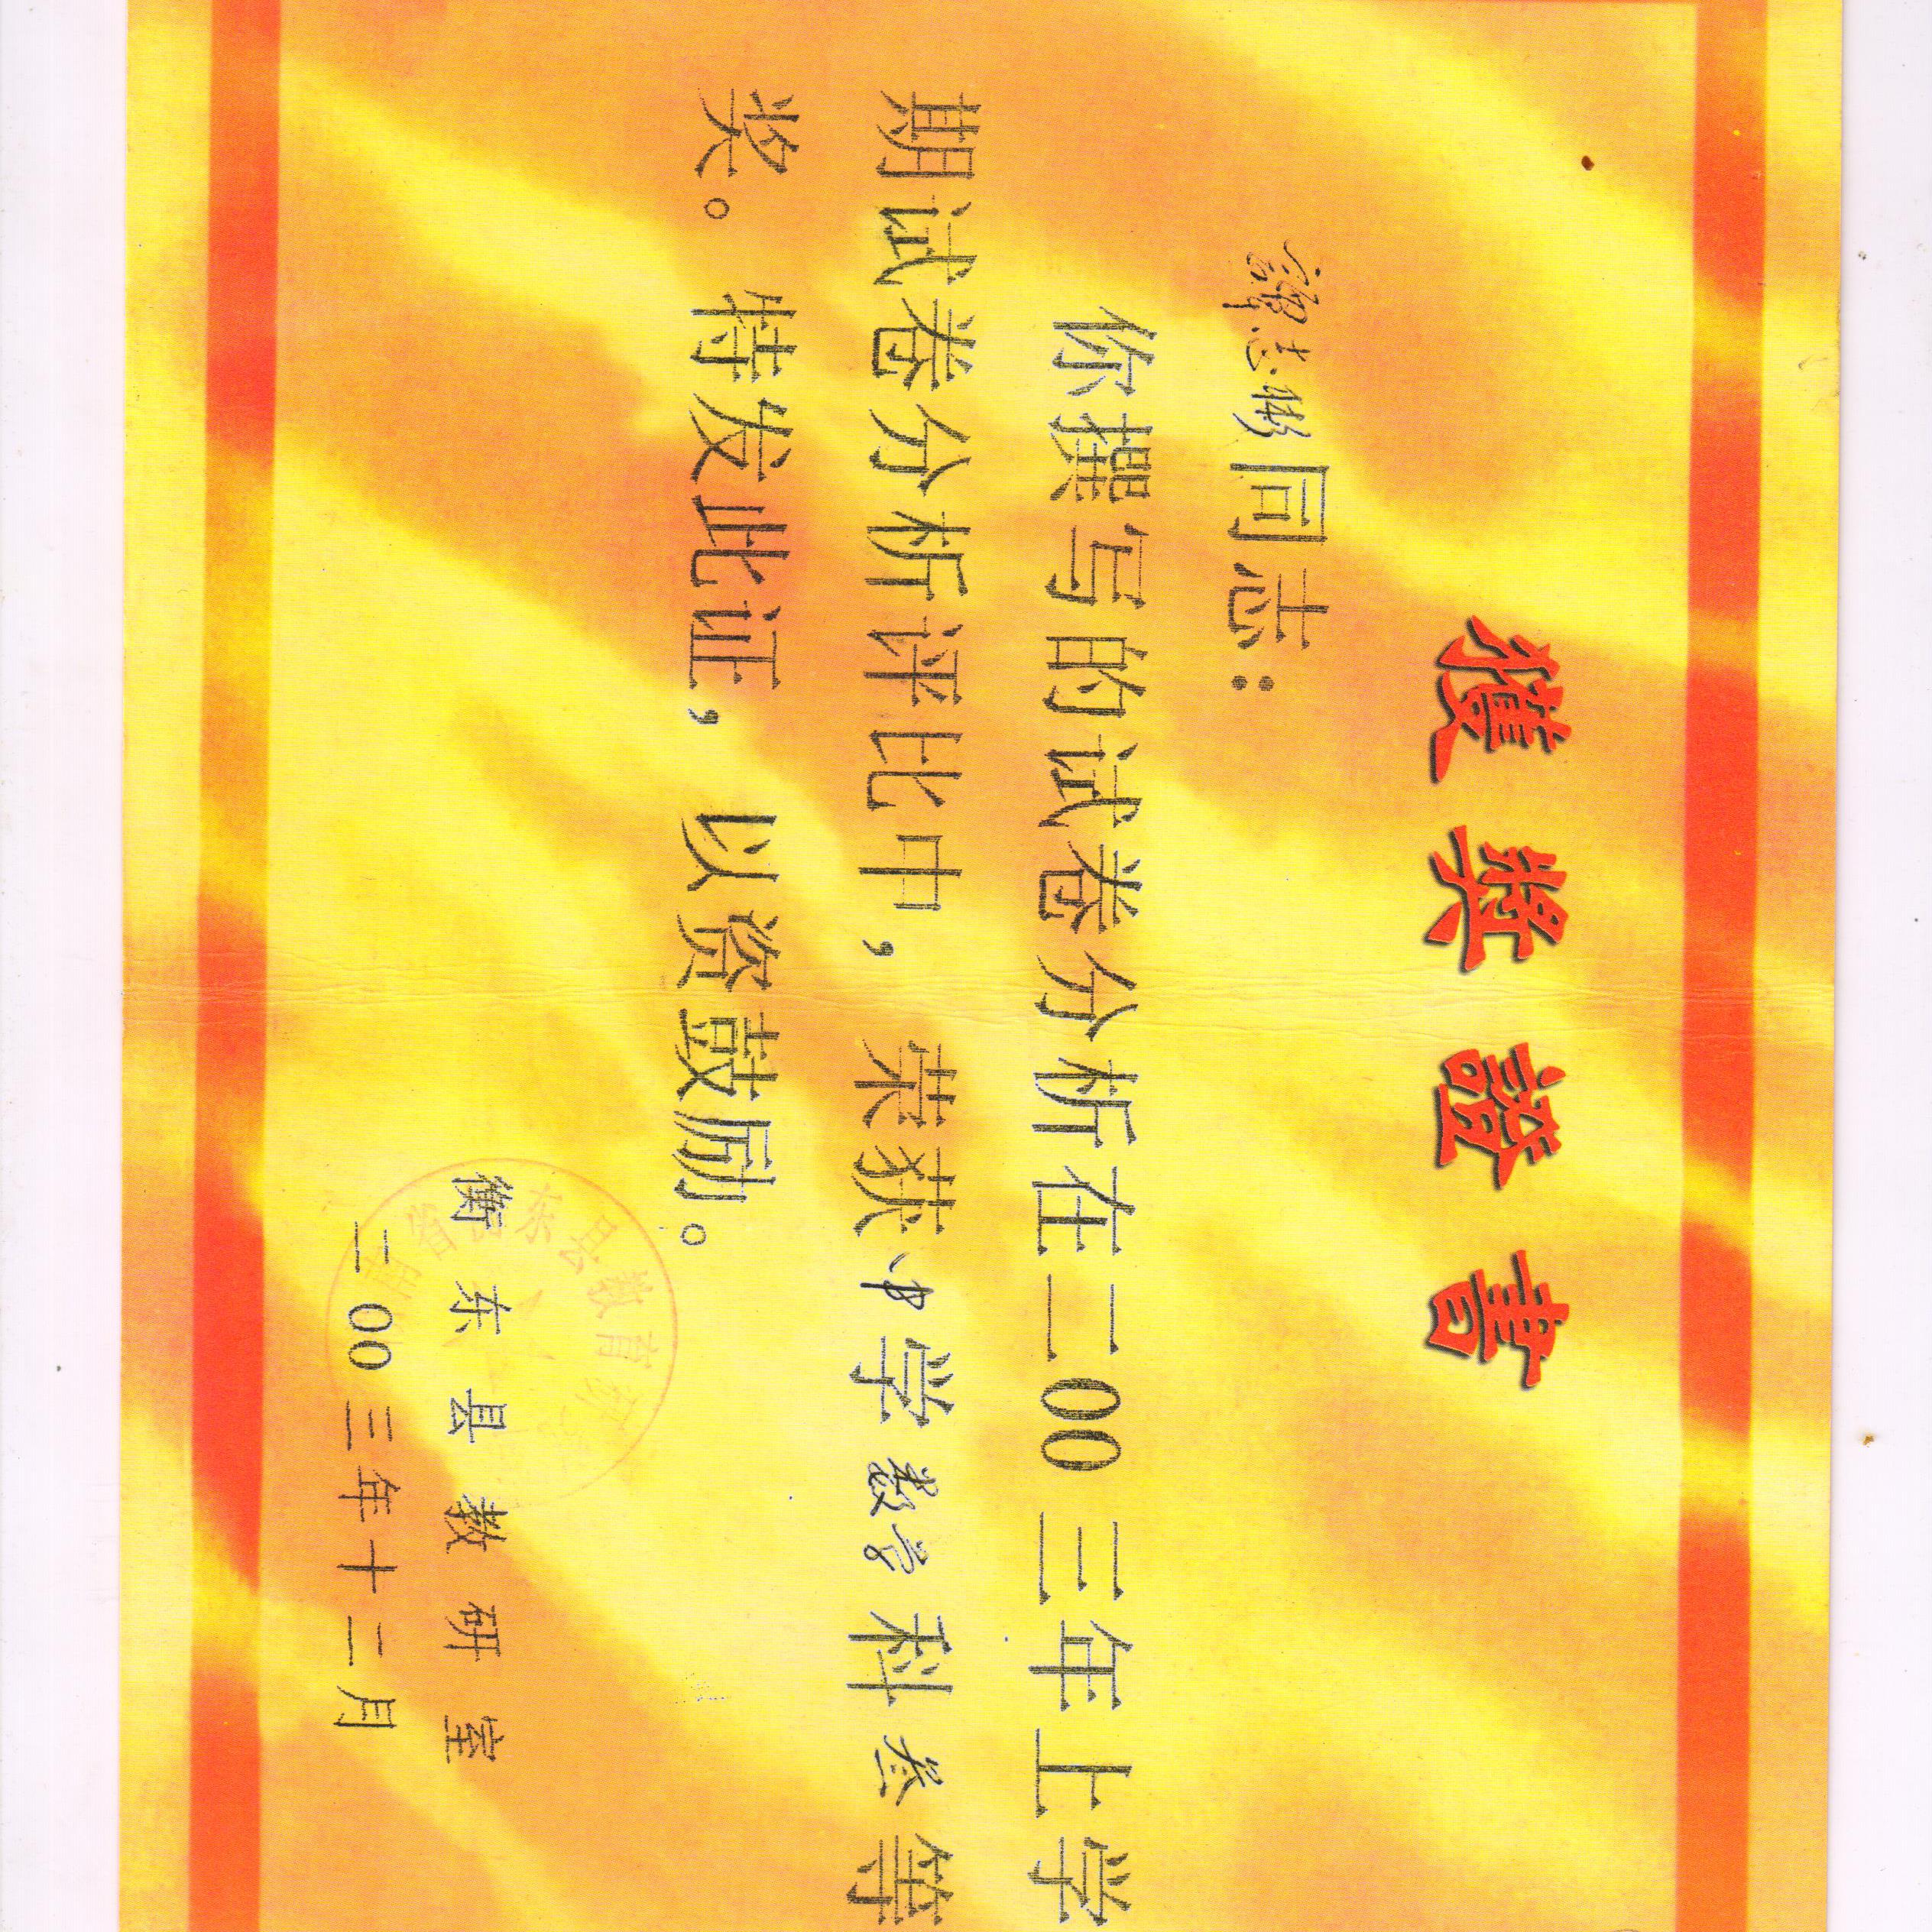 獲奬證書
同志：
你撰写的试卷分析在二00三年上学
期试卷分析评比中，荣获中学数学科叁等
奖。特发此证，以资鼓励。
衡东县教研室
二00三年十二月
南省衡东县教育研